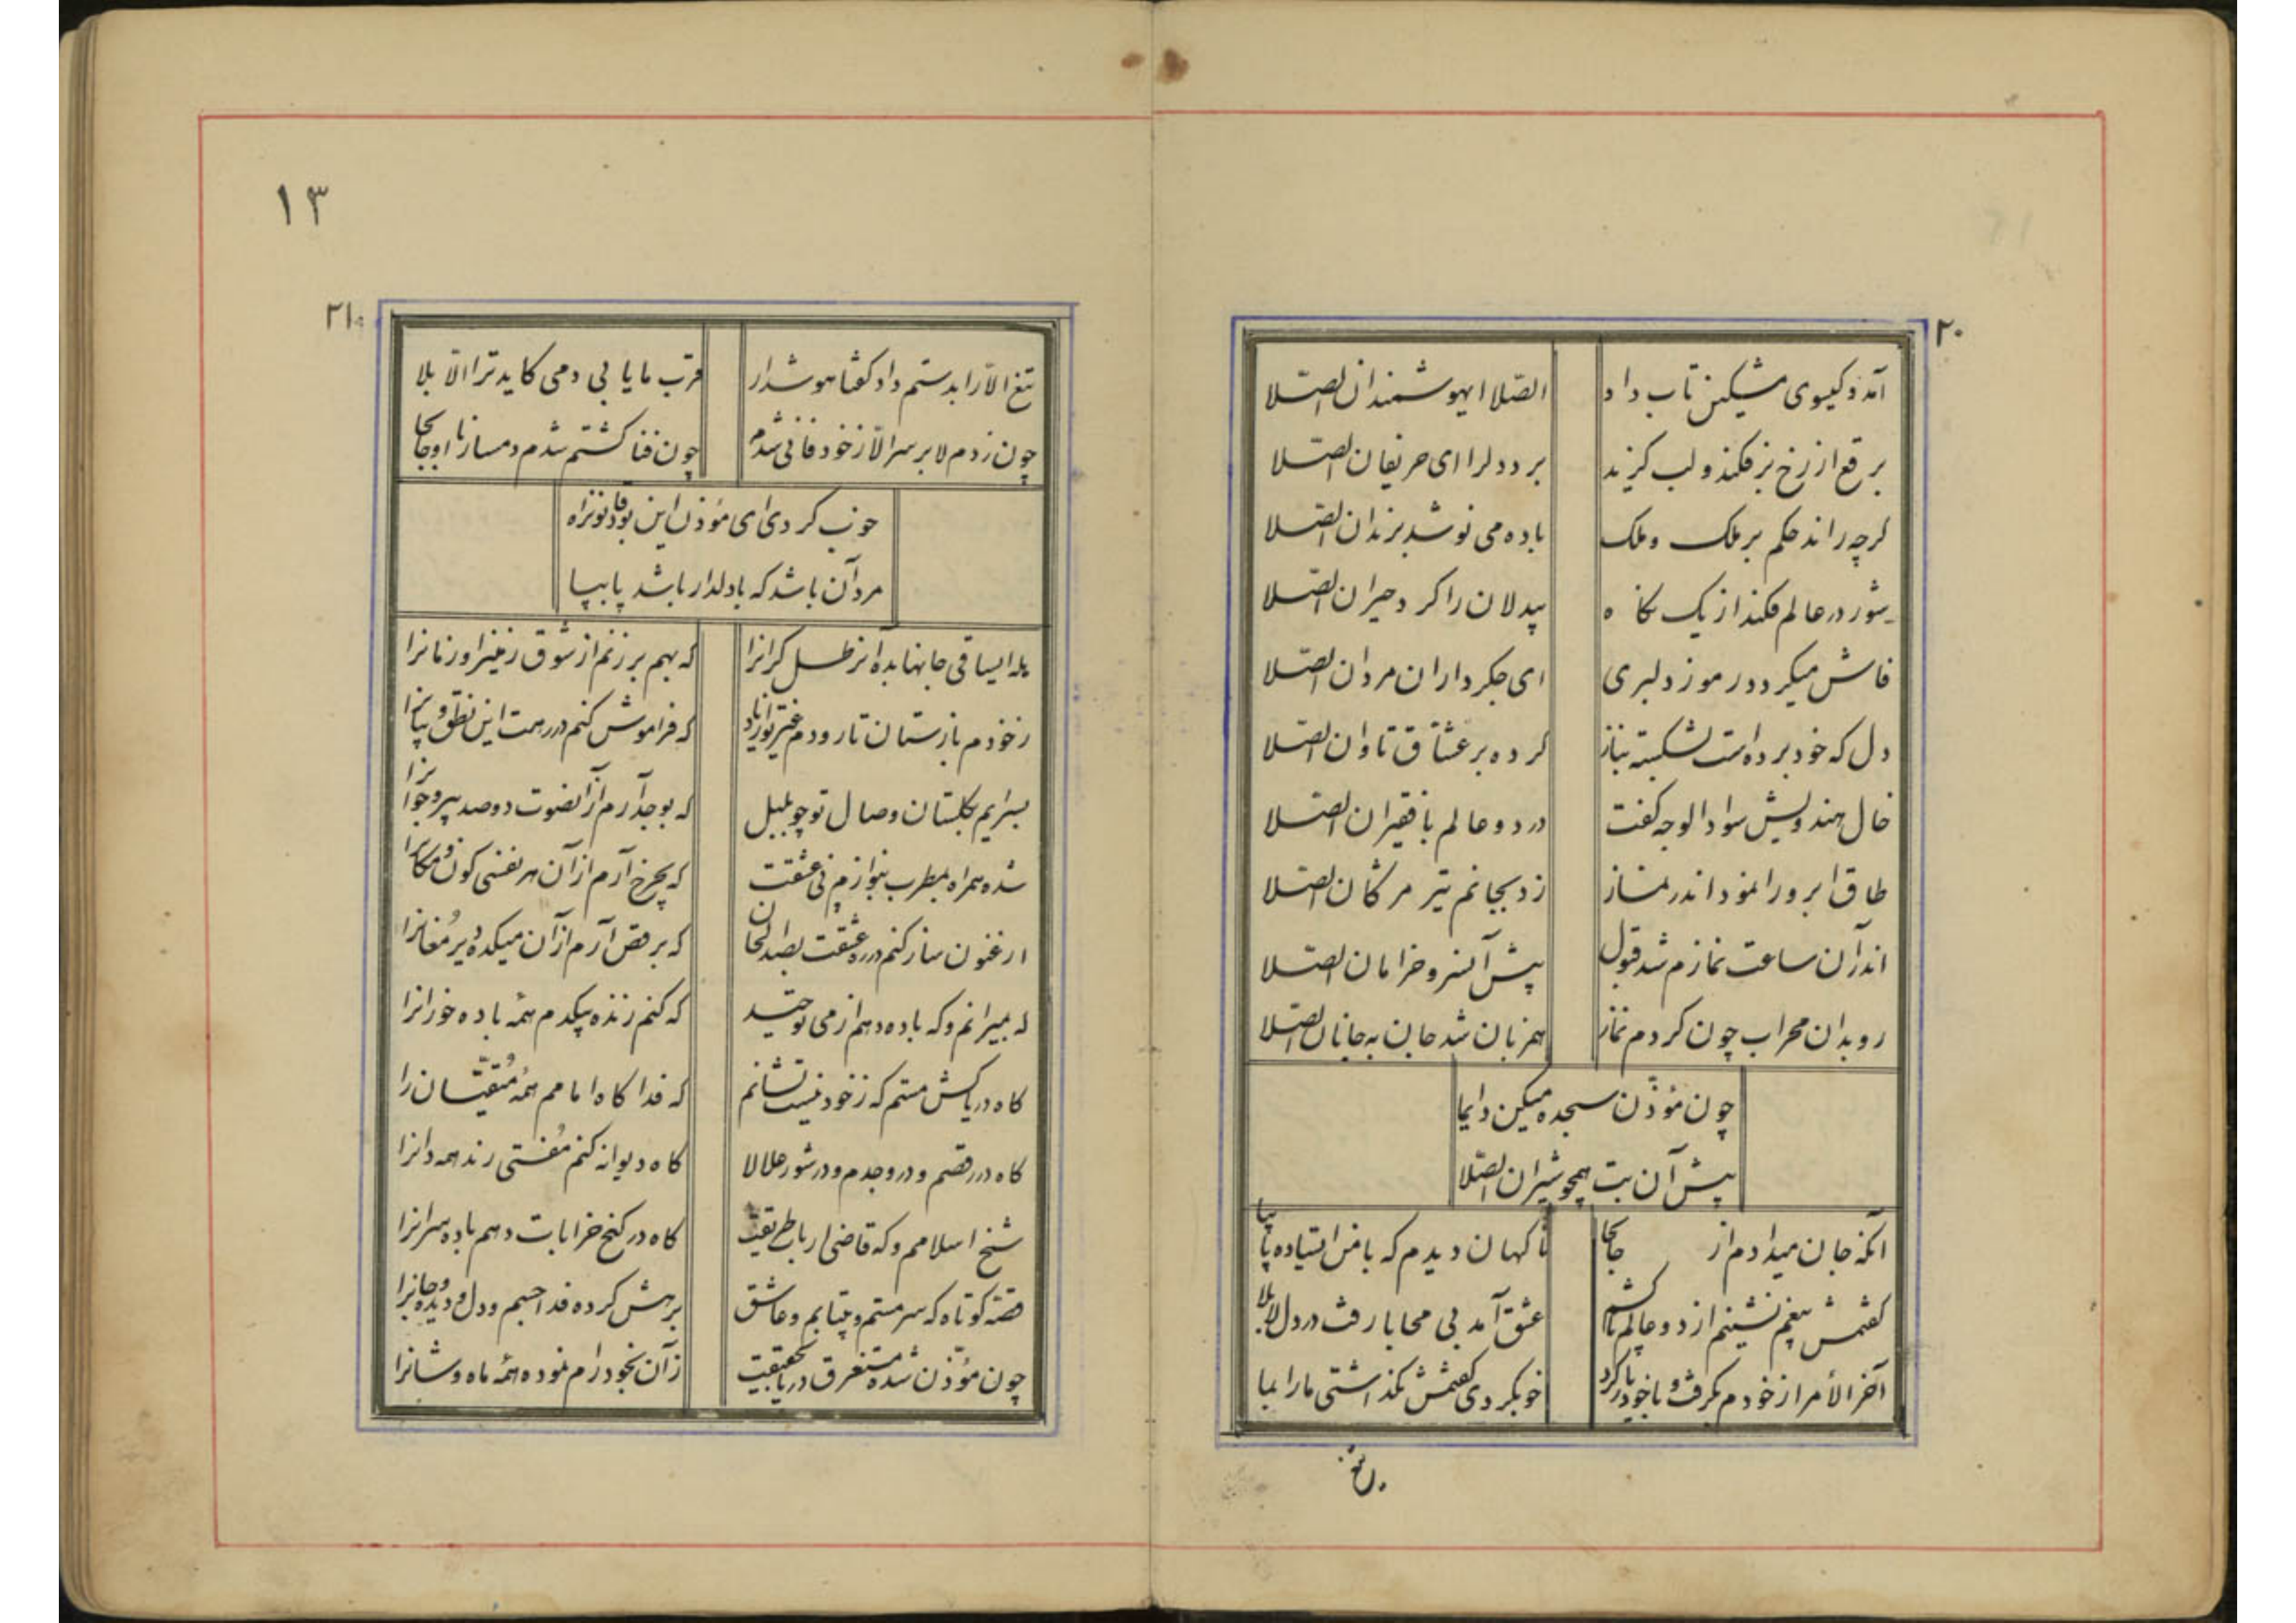 ۲۰
آمد و کیسوی مشکین تاب داد الصّلا ایهوشمندان الصّلا
برقع از رخ برفکند و لب کزید برد دلرا ای حریفان الصّلا
کرچه راند حکم بر ملک و ملک باده می نوشد برندان الصّلا
شور در عالم فکند از یک نکاه بیدلان را کرد حیران الصّلا
فاش میکردد رموز دلبری ای جکرداران مردان الصّلا
دل که خود برده است بشکسته بناز کرده بر عشّاق تاوان الصّلا
خال هندویش سواد الوجه کفت در دو عالم با فقیران الصّلا
طاق ابرو را نمود اندر نماز زد بجانم تیر مژکان الصّلا
اندر آن ساعت نمازم شد قبول پیش آنسرو خرامان الصّلا
رو بدان محراب چون کردم نماز همزبان شد جان به جانان الصّلا
چون مؤذّن سجده میکن دایما
پیش آن بت همچو شیران الصّلا
آنکه جان میدادم از جابجا ناکهان دیدم که با من ایستاده پا بپا
کفتمش بیغم نشینم از دو عالم تا کشم عشق آمد بی محابا رفت در دل لابلا
آخر الأمر از خودم بکرفت و با خود یار کرد خوبکردی کفتمش نکذاشتی ما را بما
۱۳
۲۱
تیغ الّا را بدستم داد کفتا هوشدار قرب ما یابی دمی کاید ترا الّا بلا
چون زدم لا بر سر الّا ز خود فانی شدم چون فنا کشتم شدم دمساز با او جابجا
خوب کردی ای مؤذن این بود
مرد آن باشد که با دلدار باشد پا بپا
هله ایساقی جانها بده آنرطل کرانرا که بهم بر زنم از شوق زمینرا و زمانرا
ز خودم باز ستان تا رودم غیر تو از یاد که فراموش کنم در رهت این نطق و بیانرا
بسرایم بکلستان وصال تو چو بلبل که بوجد آرم از آنصوت دو صد پیر و جوانرا
شده همراه بمطرب بنوازم نی عشقت که بچرخ آرم از آن هر نفسی کون و مکانرا
ارغنون ساز کنم در ره عشقت بصد الحان که برقص آرم از آن میکده و دیر مُغانرا
که بمیرانم و که باده دهم از می توحید که کنم زنده بیکدم همه باده خورانرا
کاه دریاکش مستم که ز خود نیست نشانم که فدا کاه امامم همه مُتقیّان را
کاه در رقصم و در وجدم و در شور علالا کاه دیوانه کنم مُفتی رند همه دانرا
شیخ اسلامم و که قاضی ارباط یقین کاه در کنج خرابات دهم باده سرانرا
قصّه کوتاه که سرمستم و بیتابم و عاشق برهش کرده فدا جسم و دل و دیده و جانرا
چون مؤذّن شده مستغرق دریای حقیقت زآن بخود رام نموده همه ماه وشانرا